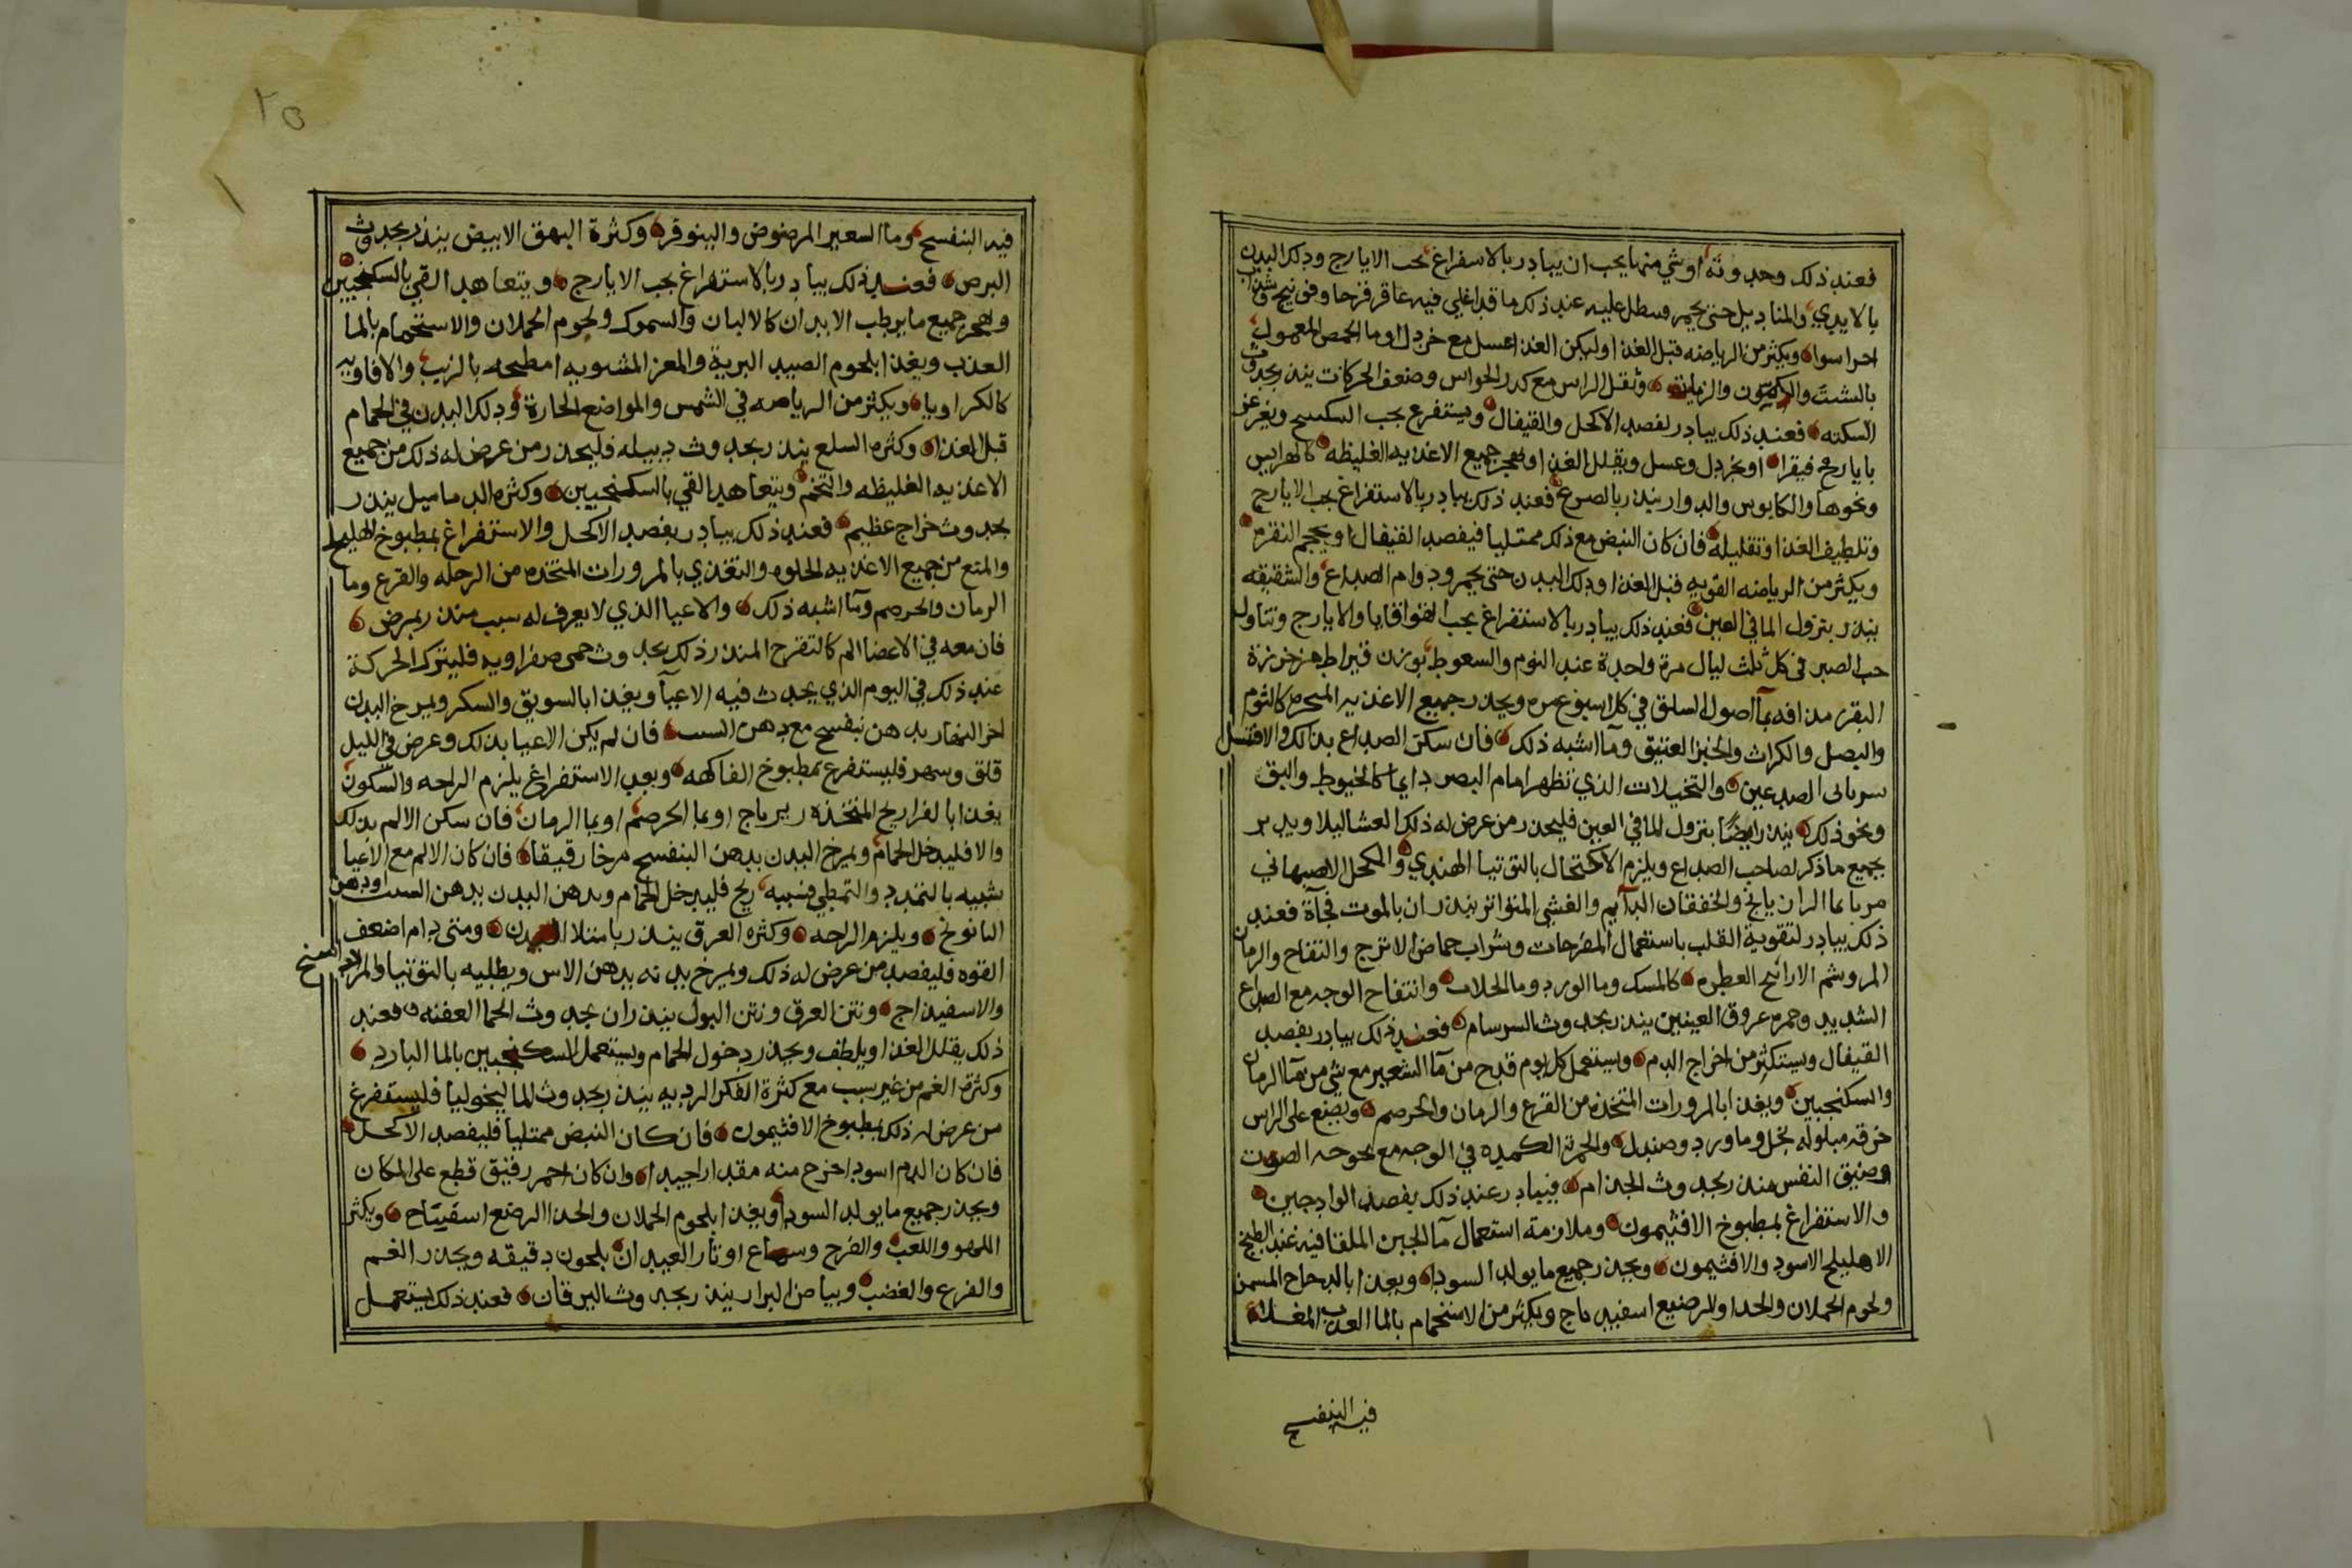 فعند ذلك وحدوثه او شي منها يجب ان يبادر بالاسفراغ بحب الايارج ودلك البدن
بالايدي والمناديل حتى يحمر وسطل عليه عند ذلك ما قد اغلي فيه عاقر قرحا وفونيج وشبت
اجزا سوا ويكثر من الرياضه قبل الغذا وليكن الغذا عسل مع خردل او ما الحمص المعمول
بالشبت والكمون والزيت وثقل الراس مع كدر الحواس وضعف الحركات ينذر بحدوث
السكته فعند ذلك يبادر لفصد الاكحل والقيفال ويستفرغ بحب السكبينج ويغرغر
بايارج فيقرا او بخردل وعسل ويقلل الغذا ويهجر جميع الاغذيه الغليظه كالهرايس
ونحوها والكابوس والدوار ينذر بالصرع فعند ذلك يبادر بالاستفراغ بحب الايارج
وتلطيف الغذا وتقليله فان كان النبض مع ذلك ممتليا فيفصد القيفال او يحجم النقره
ويكثر من الرياضه القويه قبل الغذا ودلك البدن حتى يحمر ودوام الصداع والشقيقه
ينذر بنزول الما في العين فعند ذلك يبادر بالاستفراغ بحب القوقايا والايارج وتناول
حب الصبر في كل ثلث ليال مرة واحدة عند النوم والسعوط بوزن قيراط من خرزة
البقر مدافه بمآ اصول السلق في كل اسبوع مره ويحذر جميع الاغذيه المبخره كالثوم
والبصل والكراث والخبز العتيق ومآ اشبه ذلك فان سكن الصداع بذلك والا فتسل
سريانى الصدغين والتخيلات الذي تظهر امام البصر دايما كالخيوط والبق
ونحو ذلك ينذر ايضًا بنزول الما في العين فليحذر من عرض له ذلك العشا ليلا ويدبر
بجميع ما ذكر لصاحب الصداع ويلزم الاكتحال بالتوتيا الهندي والكحل الاصبهاني
مربا بما الرازيانج والخفقان الدآيم والغشي المتواتر ينذران بالموت فجآة فعند
ذلك يبادر لتقوية القلب باستعمال المفرحات وشراب حماض الاترج والتفاح والرمان
المر وشم الارائيح العطره كالمسك وما الورد وما الخلاف وانتفاخ الوجه مع الصداع
الشديد وحمره عروق العينين ينذر بحدوث السرسام فعند ذلك يبادر بفصد
القيفال ويستكثر من اخراج الدم ويستعمل كل يوم قدح من مآ الشعير مع شي من مآ الرمان
والسكنجبين ويغذا بالمرورات المتخذه من القرع والرمان والحصرم ويضع على الراس
خرقه مبلوله بخل وما ورد وصندل والحمرة الكمده في الوجه مع بحوحه الصوت
وضيق النفس منذر بحدوث الجذام فيبادر عند ذلك بفصد الوادجين
والاستفراغ بمطبوخ الافثيمون وملازمة استعمال مآ الجبن الملقا فيه عند الطبخ
الاهليلج الاسود والافثيمون ويحذر جميع ما يولد السودا ويغذا بالدجاج المسمن
ولحوم الحملان والجدا والرضيع اسفيدباج ويكثر من الاستحمام بالما العذب المغلا
فيه البنفسج
٢٥
فيه البنفسج وما الشعير المرضوض والنينوفر وكثرة البهق الابيض ينذر بحدوث
البرص فعند ذلك يبادر بالاستفراغ بحب الايارج ويتعاهد القي بالسكنجبين
وهجر جميع ما يرطب الابدان كالالبان والسموك ولحوم الحملان والاستحمام بالما
العذب ويغذا بلحوم الصيد البرية والمعز المشويه او مطبخه بالزيت والافاويه
كالكراويا ويكثر من الرياضه في الشمس والمواضع الحارة ودلك البدن في الحمام
قبل الغذا وكثره السلع ينذر بحدوث دبيله فليحذر من عرض له ذلك من جميع
الاغذيه الغليظه والتخم ويتعاهد القي بالسكنجبين وكثره الدماميل ينذر
بحدوث خراج عظيم فعند ذلك يبادر بفصد الاكحل والاستفراغ بمطبوخ الهليلج
والمنع من جميع الاغذيه الحلوه والتغذي بالمرورات المتخذه من الرجله والقرع وما
الرمان والحصرم ومآ اشبه ذلك والاعيا الذي لا يعرف له سبب منذر بمرض
فان معه في الاعضا الم كالتقرح المنذر ذلك بحدوث حمى صفراويه فليترك الحركة
عند ذلك في اليوم الذي يحدث فيه الاعيآ ويغذا بالسويق والسكر ويمرخ البدن
اخر النهار بدهن بنفسج مع دهن الشبت فان لم يكن الاعيا بذلك وعرض في الليل
قلق وسهر فليستفرغ بمطبوخ الفاكهه وبعد الاستفراغ يلزم الراحه والسكون
يغذا بالفراريج المتخذه زيرباج او بما الحصرم او بما الرمان فان سكن الالم بذلك
والا فليدخل الحمام ويمرخ البدن بدهن البنفسج مرخا رقيقا فان كان الالم مع الاعيا
شبيه بالتمدد والتمطي فسببه ريح فليدخل الحمام ويدهن البدن بدهن الشبت او دهن
البابونج ويلزم الراحه وكثره العرق ينذر بامتلا البدن ومتى دام اضعف
القوه فليفصد من عرض له ذلك ويمرخ بدنه بدهن الاس ويطليه بالتوتيا والمرداسنج
والاسفيذاج ونتن العرق ونتن البول ينذران بحدوث الحما العفنه فعند
ذلك يقلل الغذا ويلطف ويحذر دخول الحمام ويستعمل السكنجبين بالما البارد
وكثرة الغم من غير سبب مع كثرة الفكر الرديه ينذر بحدوث الماليخوليا فليستفرغ
من عرض له ذلك بمطبوخ الافثيمون فان كان النبض ممتليا فليفصد الاكحل
فان كان الدم اسود اخرج منه مقدارا جيدا وان كان احمر رقيق قطع على المكان
ويحذر جميع ما يولد السودا ويغذا بلحوم الحملان والجدا الرضع اسفيتاج ويكثر
اللهو واللعب والفرح وسماع اوتار العيدان بلحون دقيقه ويحذر الغم
والفزع والغضب وبياض البراز ينذر بحدوث اليرقان فعند ذلك يستعمل